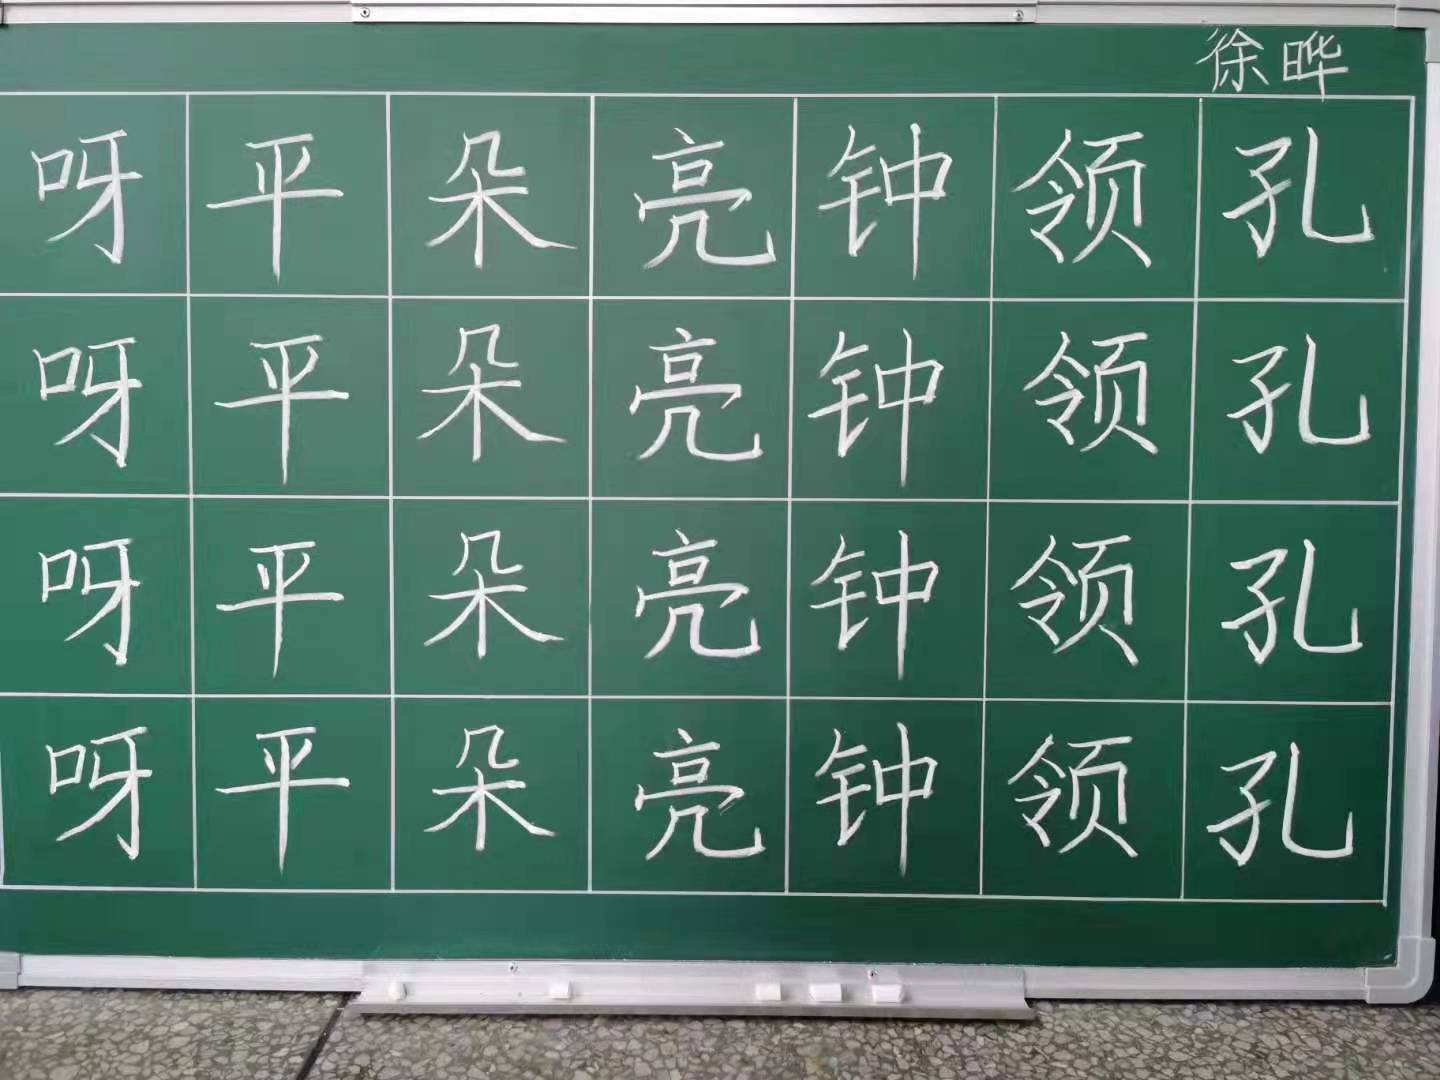 徐晔
呀平朵亮钟领孔
呀平朵亮钟领孔
呀平朵亮钟领孔
呀平朵亮钟领孔